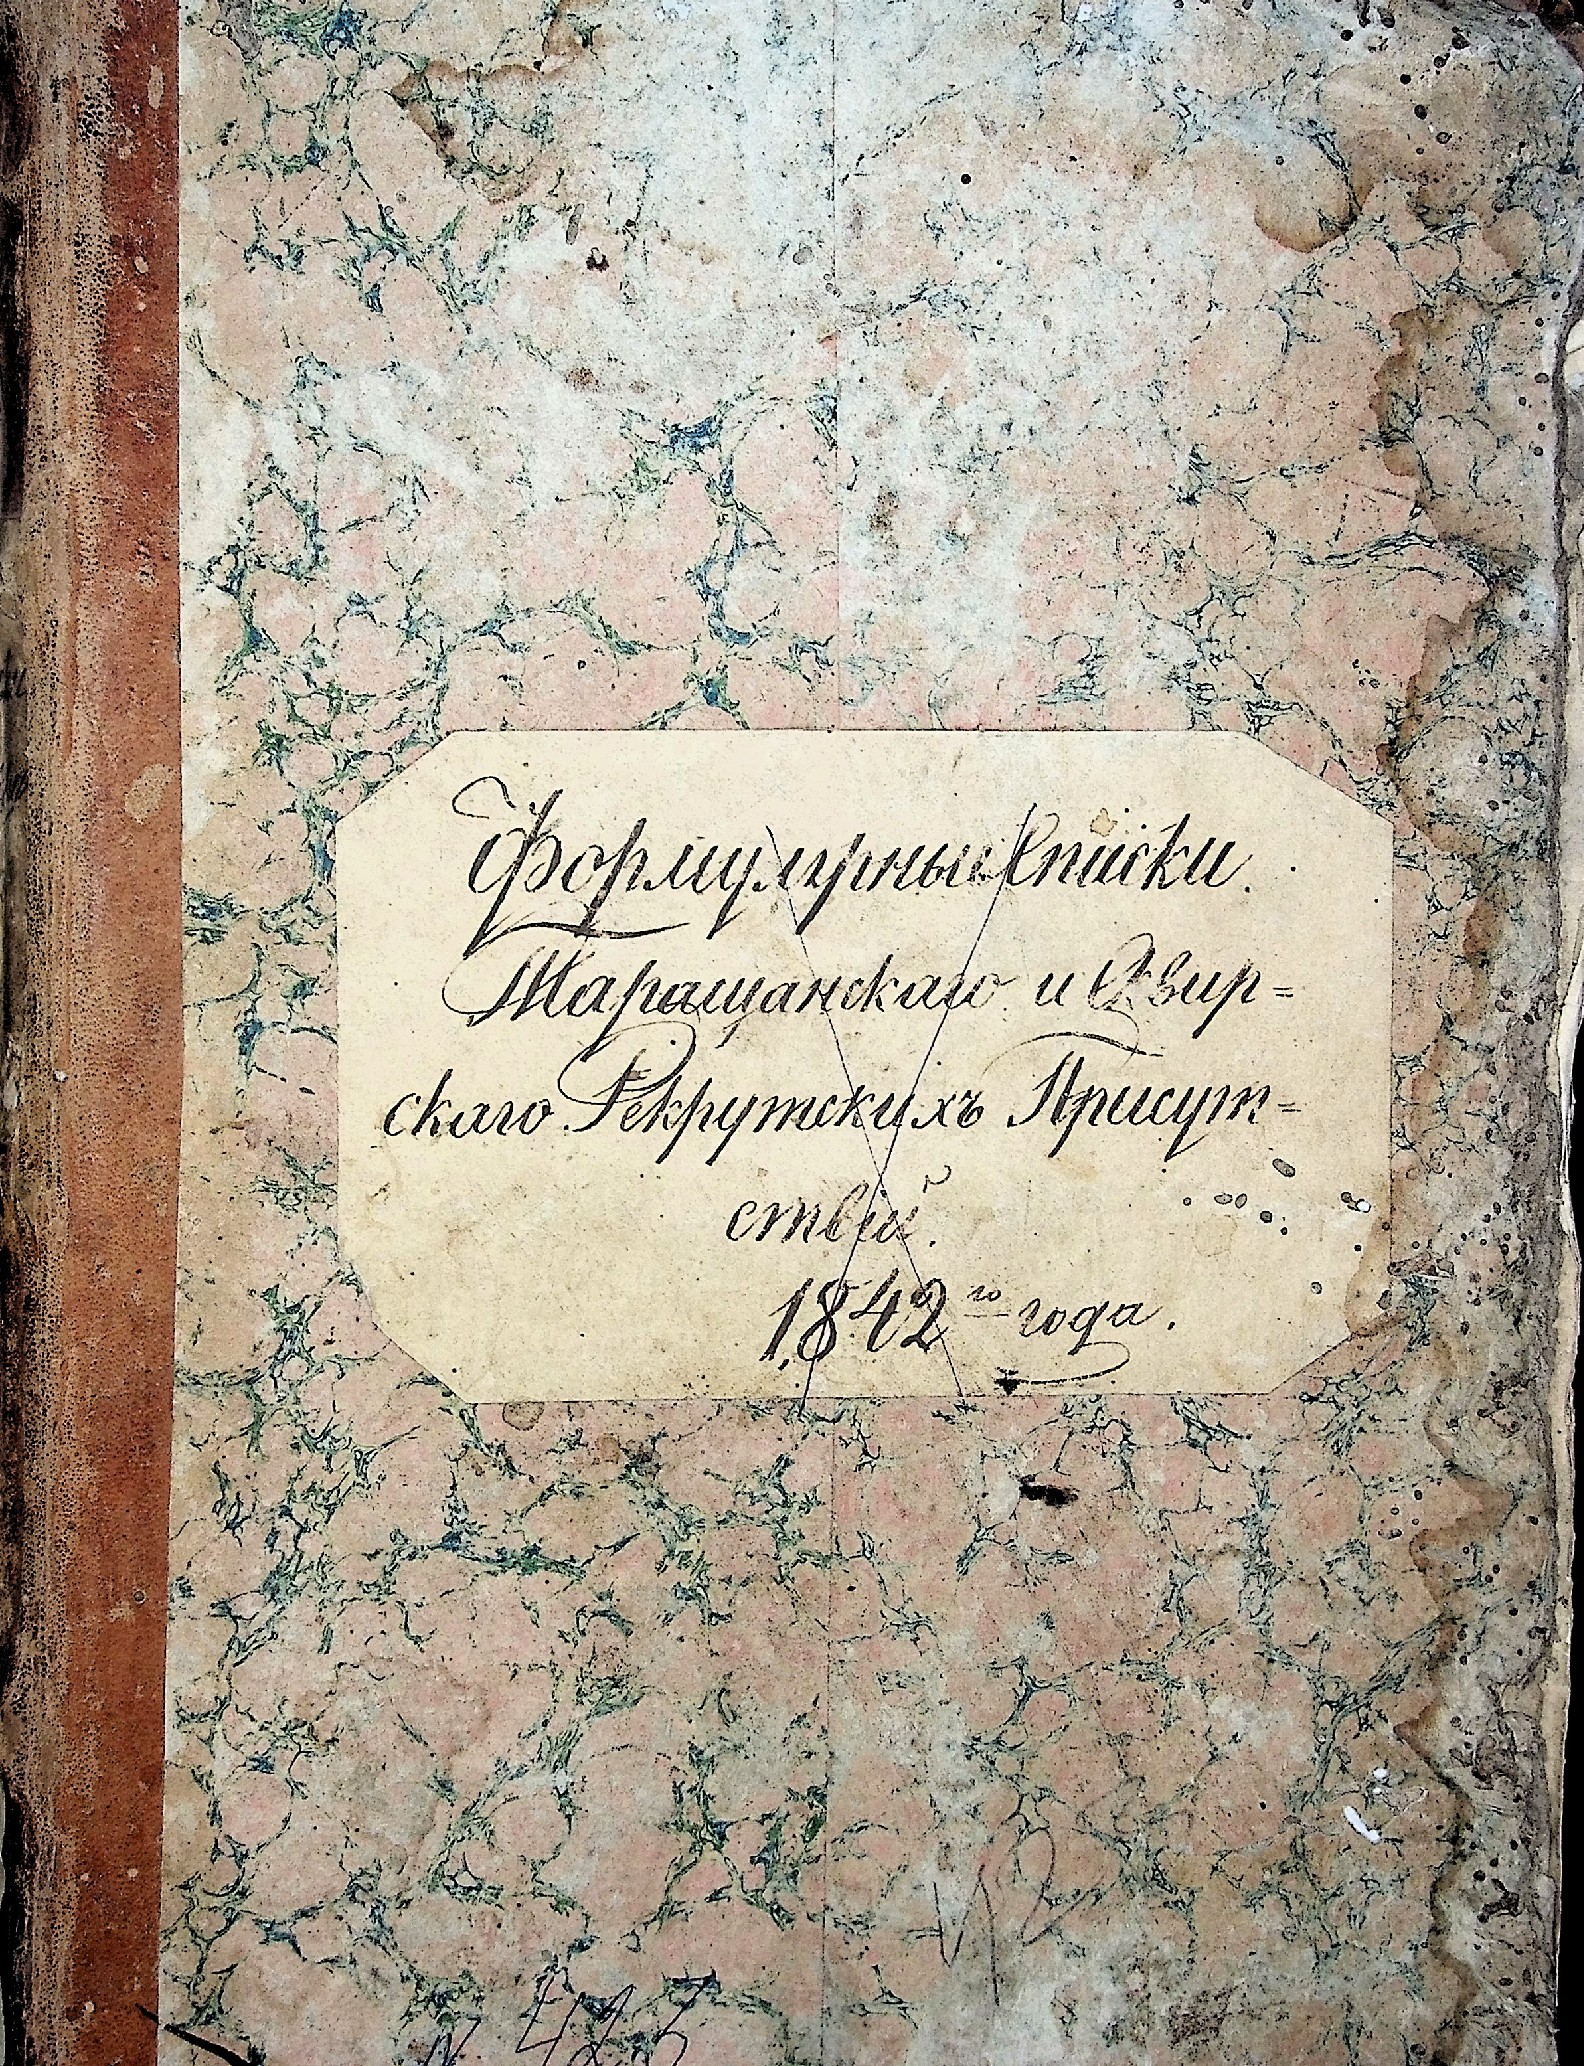 Формулярныи Списки.
Таращанскаго и Сквир=
скаго Рекрутскихъ Присут=
ствій.
1842го года.